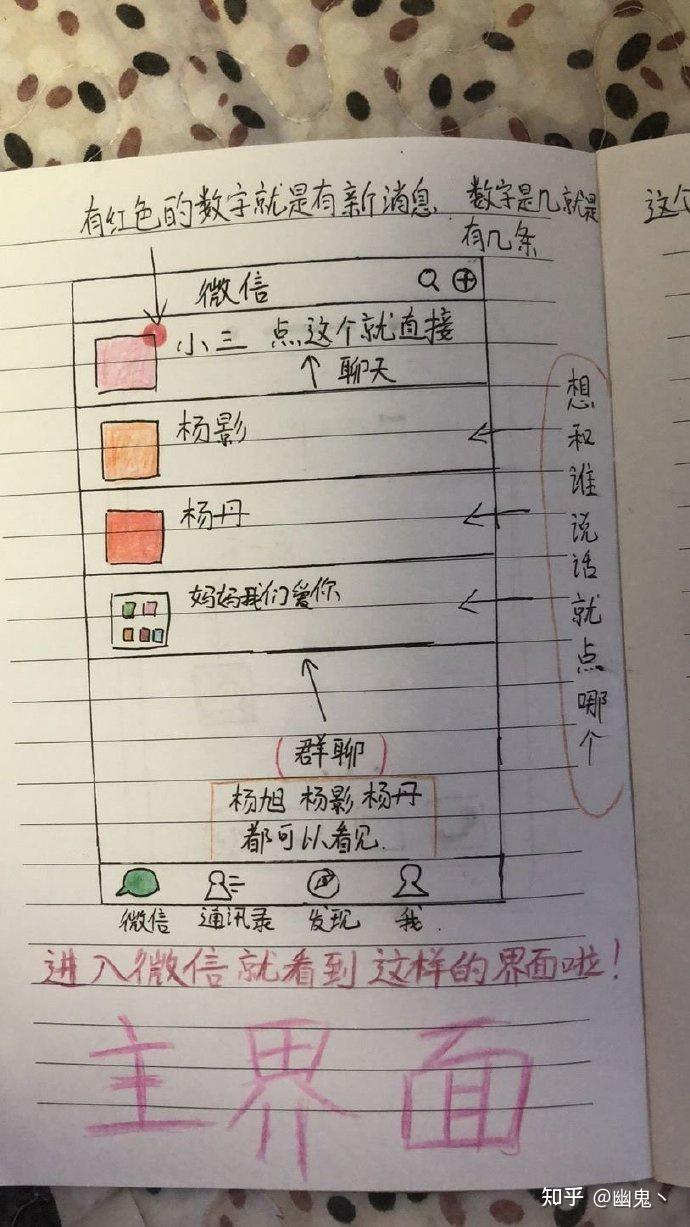 有红色的数字就是有新消息 数字是几就是
有几条
这个
微信
小三 点这个就直接
聊天
杨影
杨丹
妈妈我们爱你
想和谁说话就点哪个
(群聊)
杨旭 杨影 杨丹
都可以看见.
微信 通讯录 发现 我.
进入微信就看到这样的界面啦!
主界面
知乎 @幽鬼丶